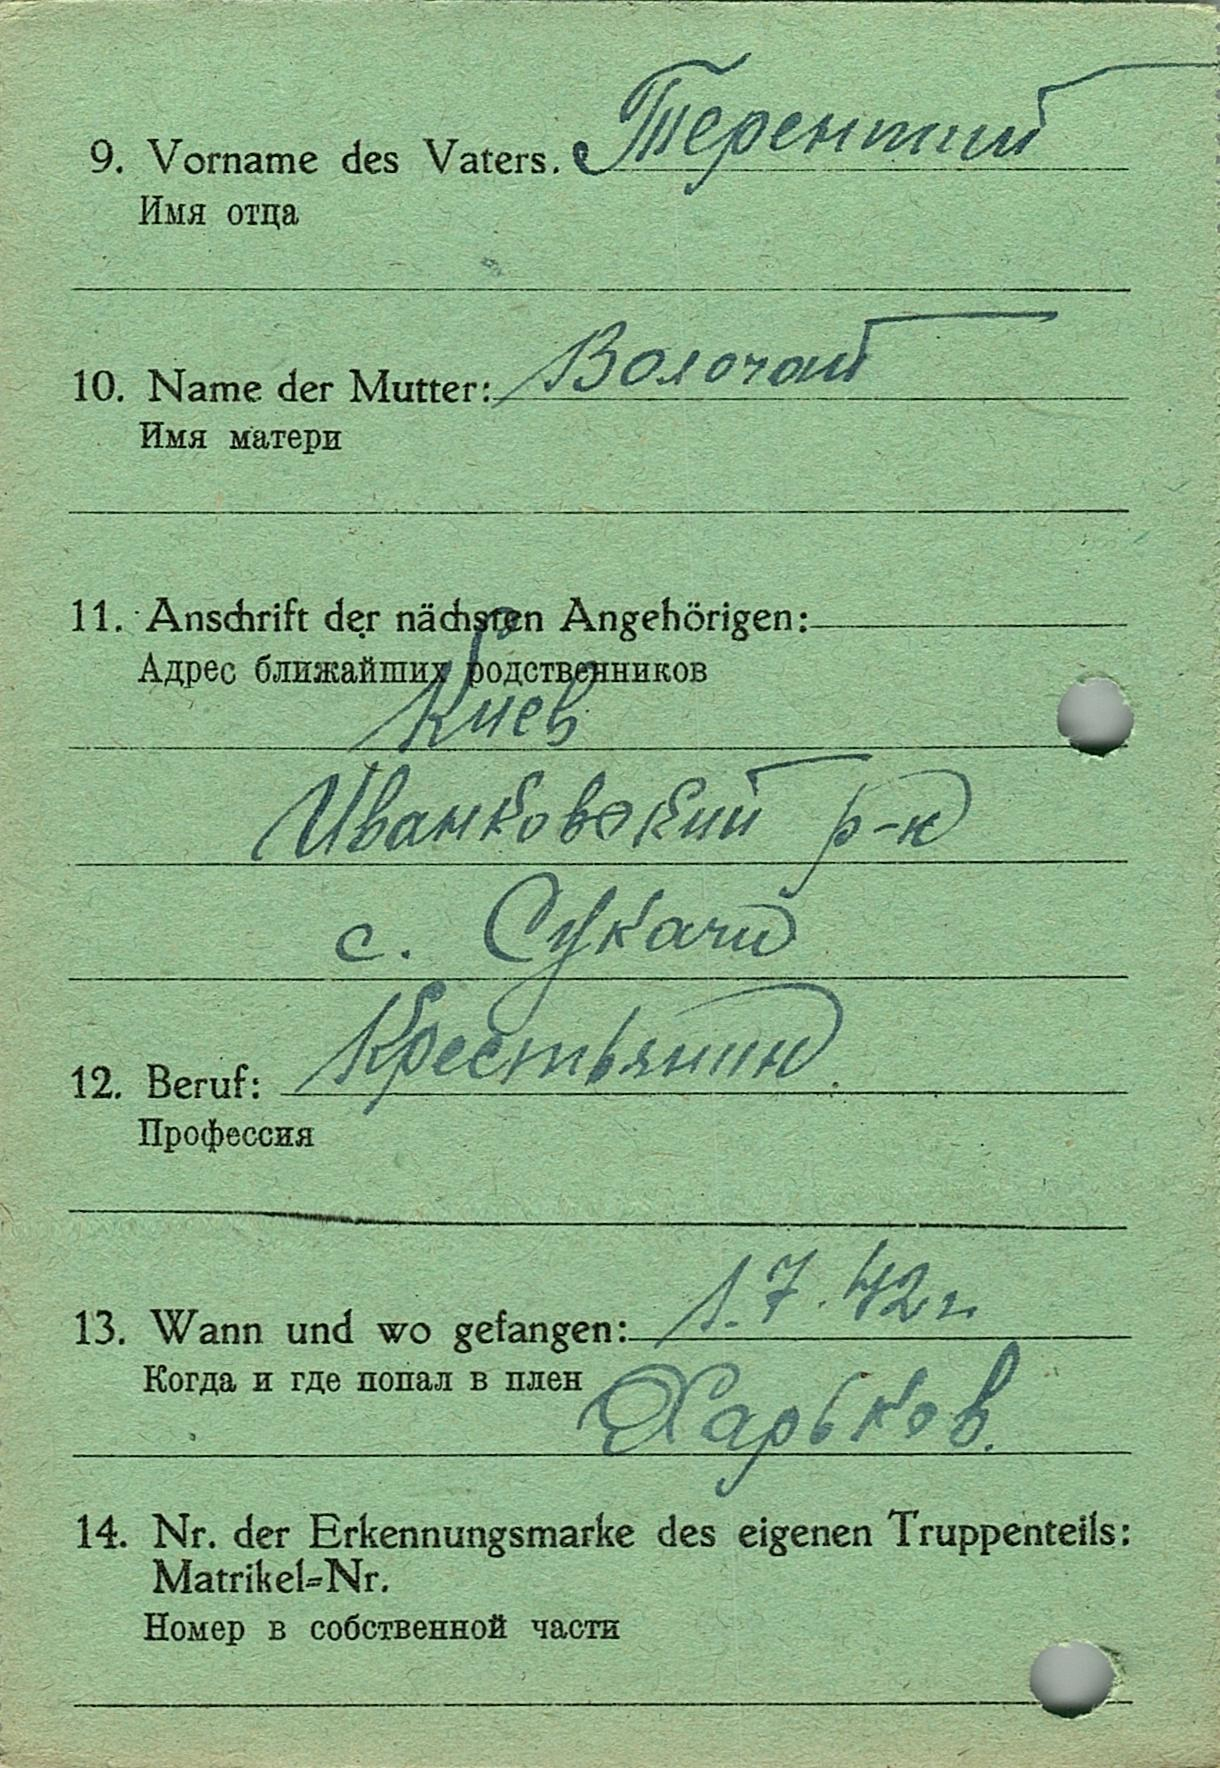 9. Vorname des Vaters. Терентий
Имя отца
10. Name der Mutter: Волочай
Имя матери
11. Anschrift der nächsten Angehörigen:
Адрес ближайших родственников
Киев
Иванковский р-н
с. Сукачи
Крестьянин
12. Beruf:
Профессия
13. Wann und wo gefangen: 1.7.42 г.
Когда и где попал в плен
Харьков.
14. Nr. der Erkennungsmarke des eigenen Truppenteils:
Matrikel-Nr.
Номер в собственной части